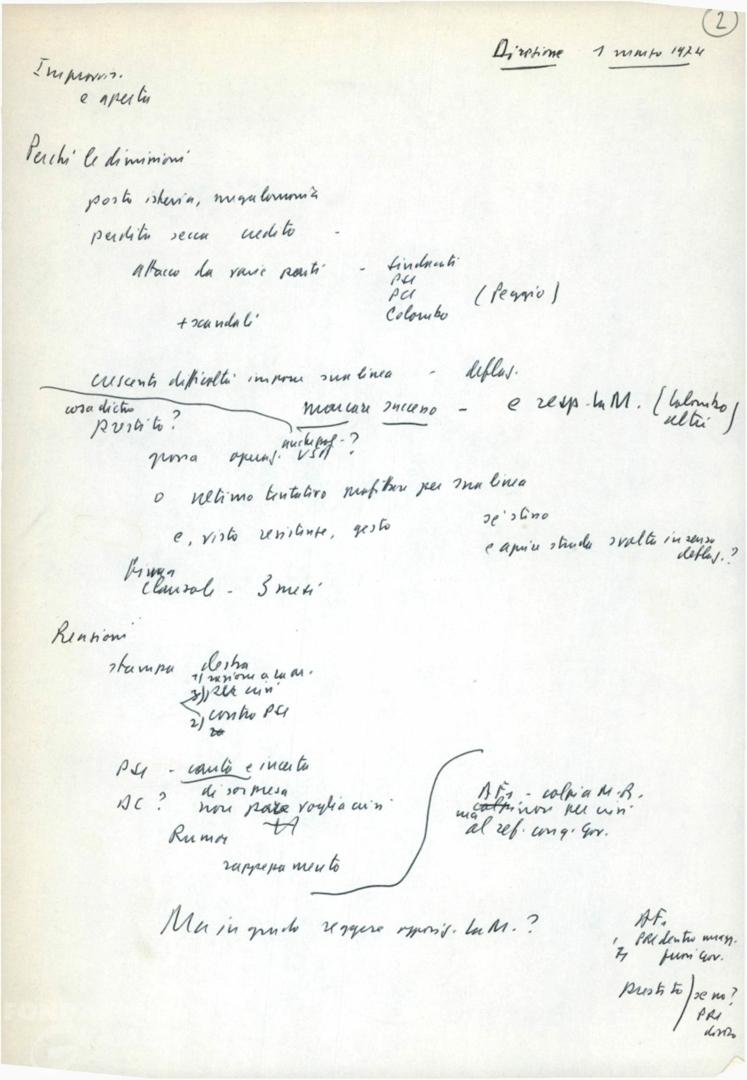 2
Direzione 1 marzo 1974
Improvvis.
e aperta
Perché le dimissioni
posto isteria, megalomania
perdita secca credito -
attacco da varie parti - sindacati
PSI
PCI (Peggio)
Colombo
+ scandali
crescenti difficoltà imporre sua linea - deflaz.
cosa dietro
prestito?
mancare successo - e resp. La M. (Colombo
altri)
anche
USA?
o ultimo tentativo profittare per sua linea
e, visto resistenze, gesto
e aprire strada svolta in senso
deflaz.?
Firma
clausole - 3 mesi
Reazioni
stampa destra
1)
3) per crisi
2) contro PSI
PSI - cauta e incerta
di sorpresa
DC? non pare voglia crisi
Rumor
rappezzamento
AF. - colpia M.R.
ma non per crisi
al ref. con q. gov.
Ma in grado reggere opposiz. La M.?
AF.
PRI dentro magg.
fuori gov.
prestito / se no?
PRI
dentro
FOND